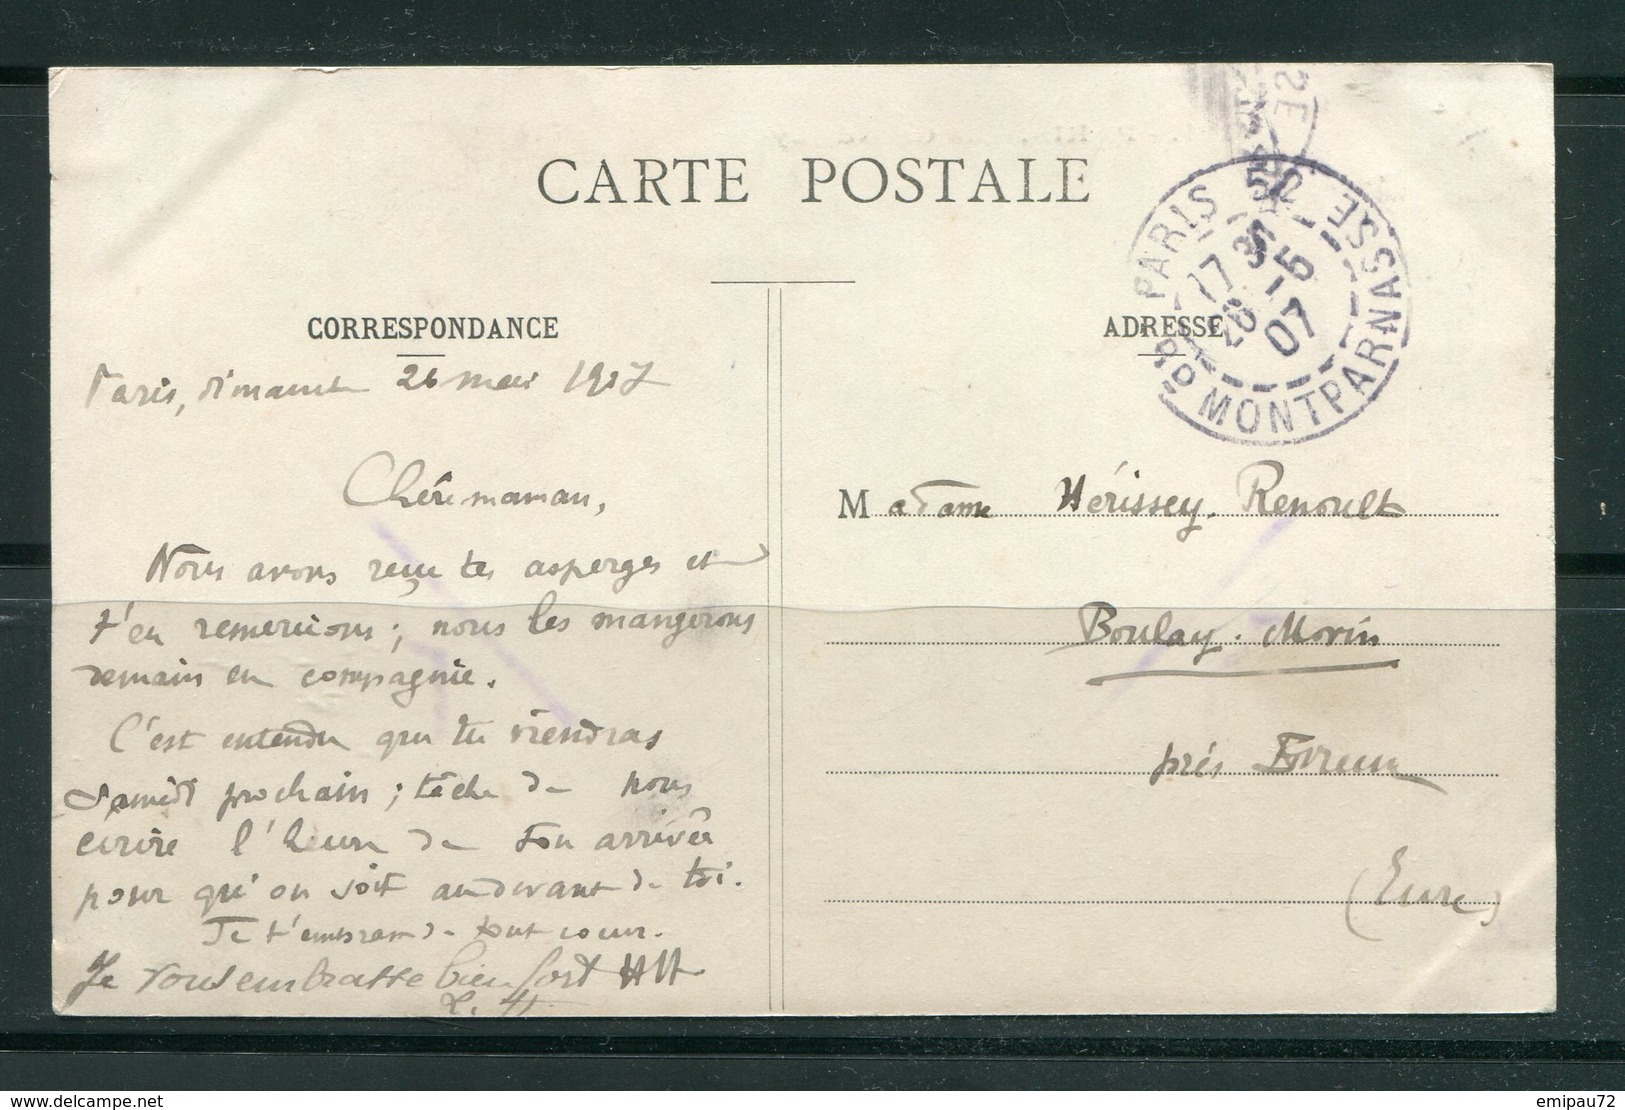 CARTE POSTALE
CORRESPONDANCE
Paris, dimanche 26 mai 1907
Chère maman,
Nous avons reçu tes asperges et
t'en remercions ; nous les mangerons
demain en compagnie.
C'est entendu que tu viendras
Samedi prochain ; tâche de nous
écrire l'heure de ton arrivée
pour qu'on soit au devant de toi.
Je t'embrasse de tout cœur.
Je vous embrasse bien fort HH
ADRESSE
PARIS 52
BD MONTPARNASSE
17 35
26 -5
07
Madame Hérissey-Renoult
Boulay-Morin
près Evreux
(Eure)
delcampe.net
emipau72